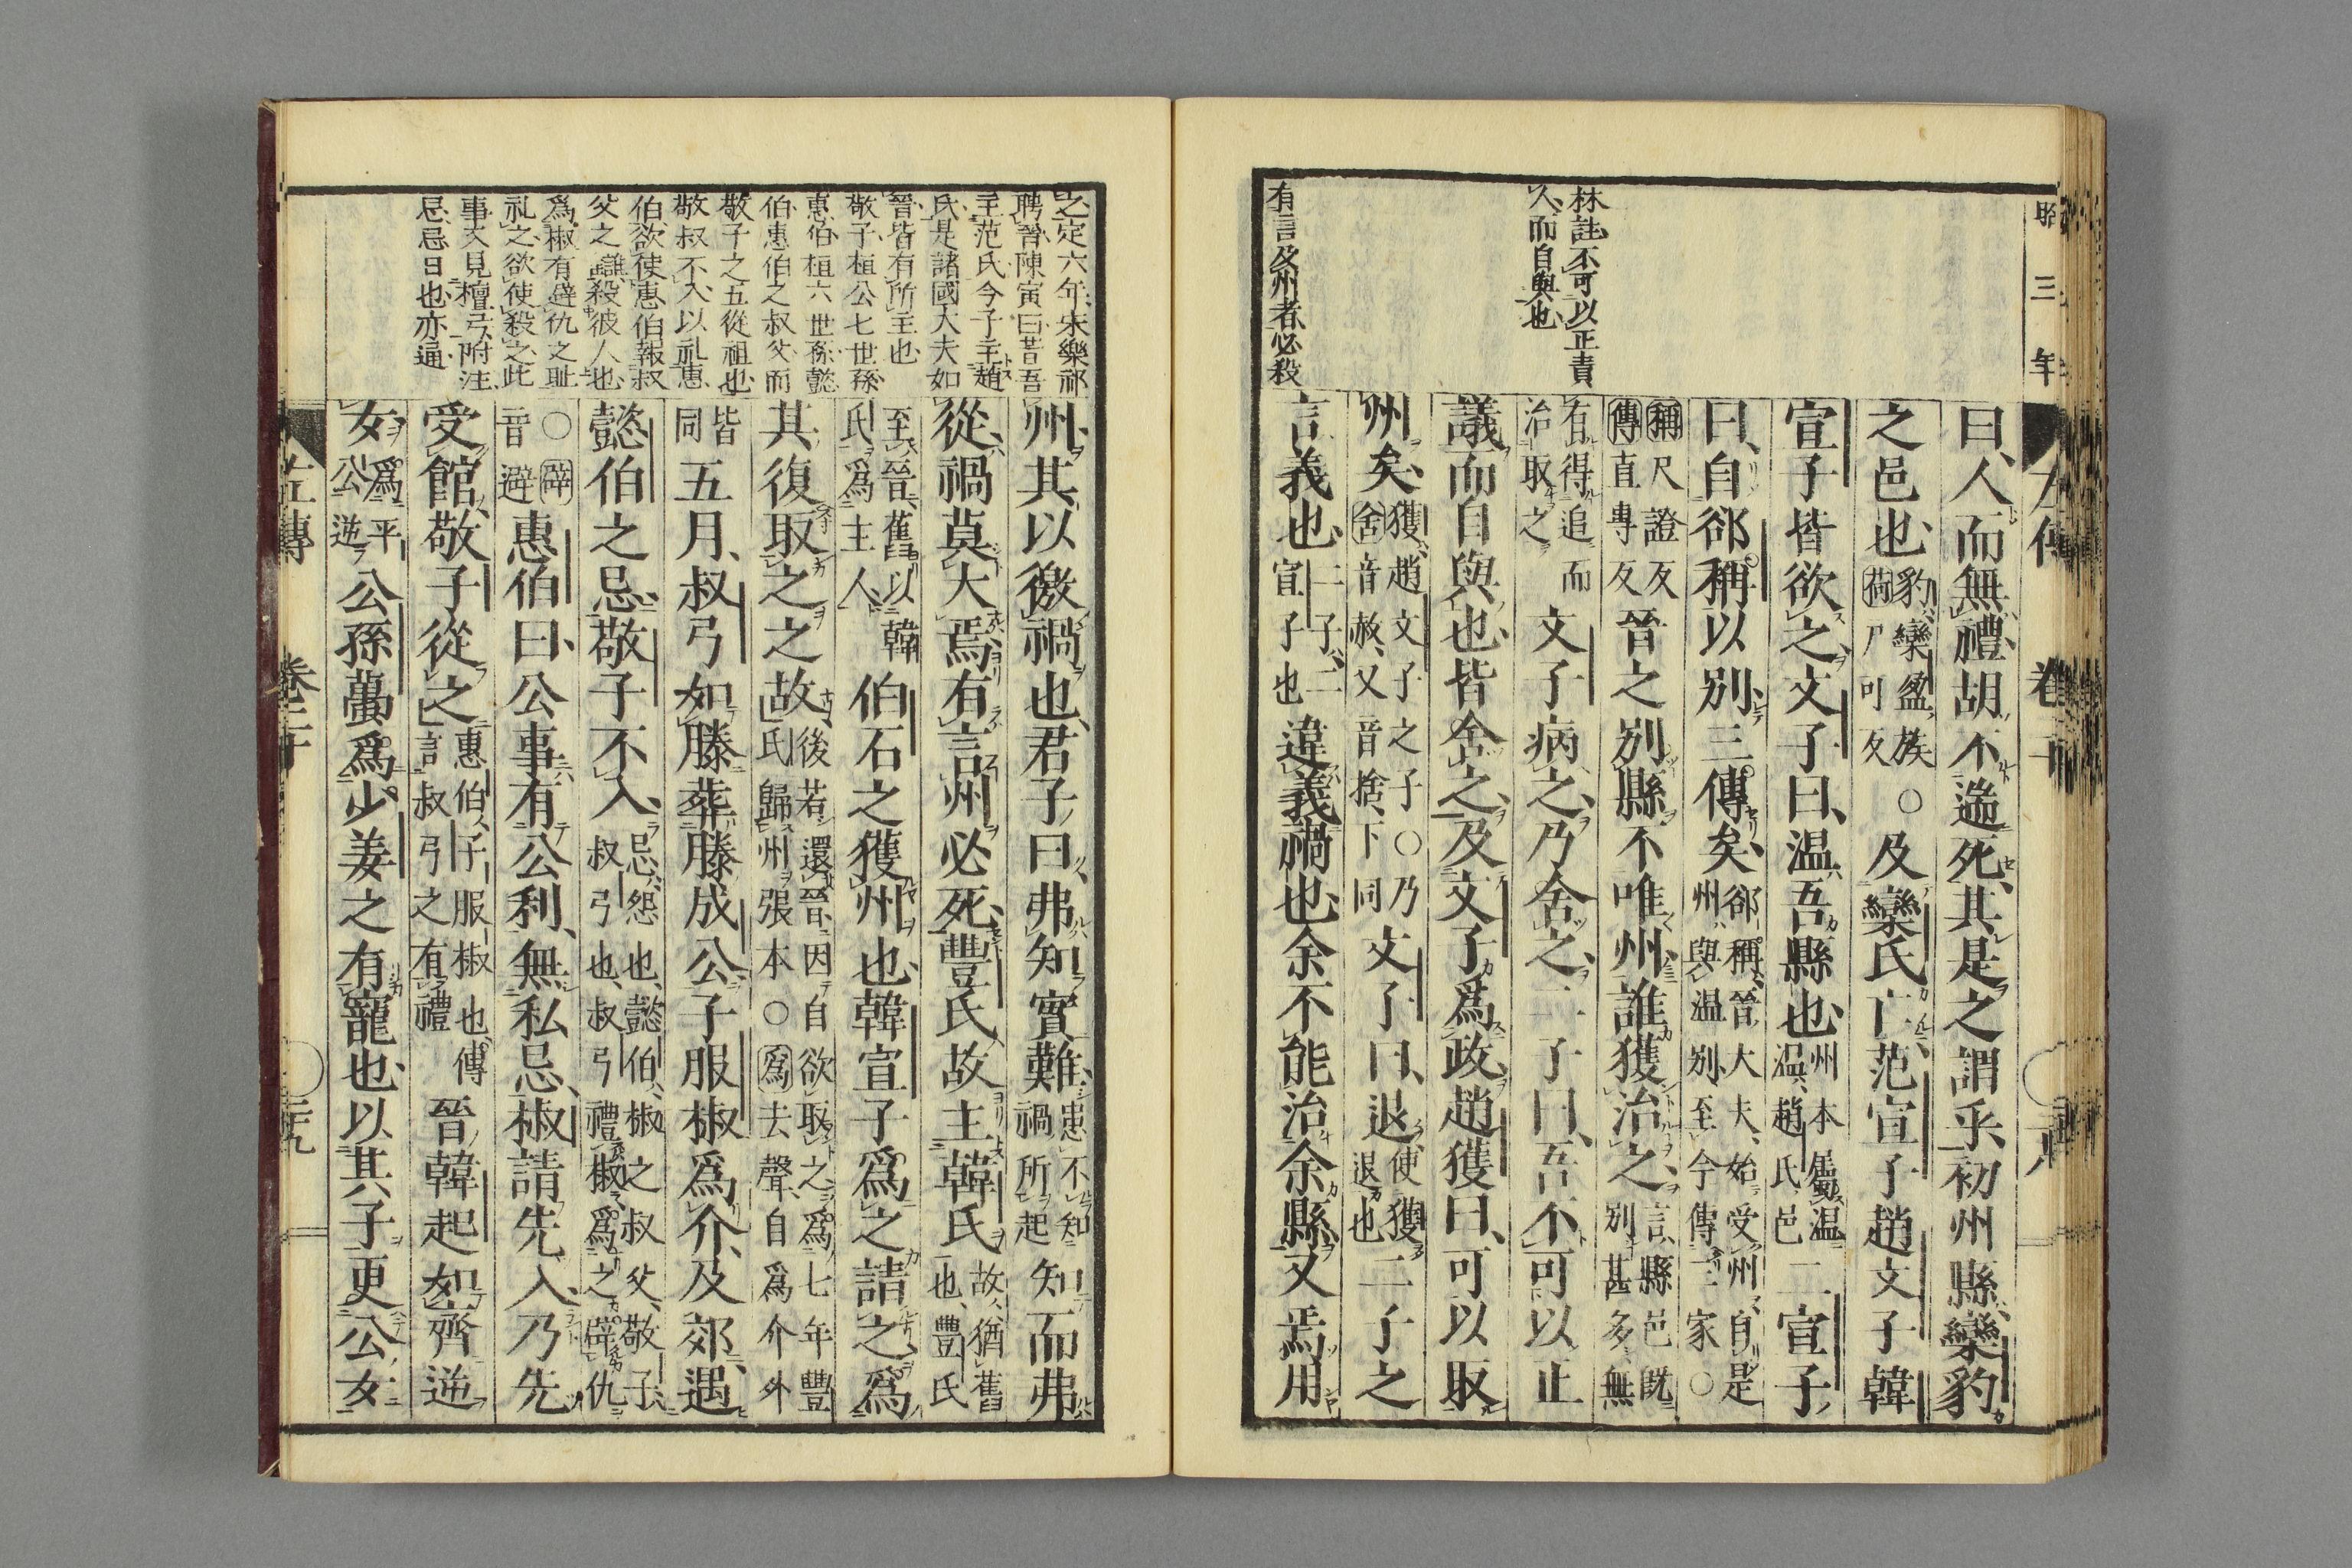 昭三年
曰人而無禮胡不遄死其是之謂乎初州縣欒豹
之邑也豹欒盈族荷戶可反○及欒氏亡范宣子趙文子韓
宣子皆欲之文子曰温吾縣也州本屬温温趙氏邑二宣子
曰自郤稱以別三傳矣郤稱晉大夫始受州自是州與温別至今傳三家○
稱尺證反傳直專反晉之別縣不唯州誰獲治之言縣邑既別甚多無
有得追而治取之文子病之乃舍之二子曰吾不可以正
議而自與也皆舍之及文子爲政趙獲曰可以取
州矣獲趙文子之子○乃舍音赦又音捨下同文子曰退使獲退也二子之
言義也二子二宣子也違義禍也余不能治余縣又焉用
林註不可以正責
人而自與也
有言及州者必殺
州其以徼禍也君子曰弗知實難患不知禍所起知而弗
從禍莫大焉有言州必死豐氏故主韓氏故猶舊也豐氏
至晉舊以韓氏爲主人伯石之獲州也韓宣子爲之請之爲
其復取之之故後若還晉因自欲取之爲七年豐氏歸州張本○爲去聲自爲介外
皆同五月叔弓如滕葬滕成公子服椒爲介及郊遇
懿伯之忌敬子不入忌怨也懿伯椒之叔父敬子叔弓也叔弓禮椒爲之辟仇
○辟音避惠伯曰公事有公利無私忌椒請先入乃先
受館敬子從之惠伯子服椒也傳言叔弓之有禮晉韓起如齊逆
女爲平公逆公孫蠆爲少姜之有寵也以其子更公女
之定六年宋樂祁
聘晉陳寅曰昔吾
主范氏今子主趙
氏是諸國大夫如
晉皆有所主也
敬子桓公七世孫
惠伯桓六世孫懿
伯惠伯之叔父而
敬子之五從祖也
敬叔不入以礼惠
伯欲使惠伯報叔
父之讎殺彼人也
爲椒有辟仇之耻
礼之欲使殺之此
事又見檀弓附注
忌忌日也亦通
左傳 卷二十 二十九